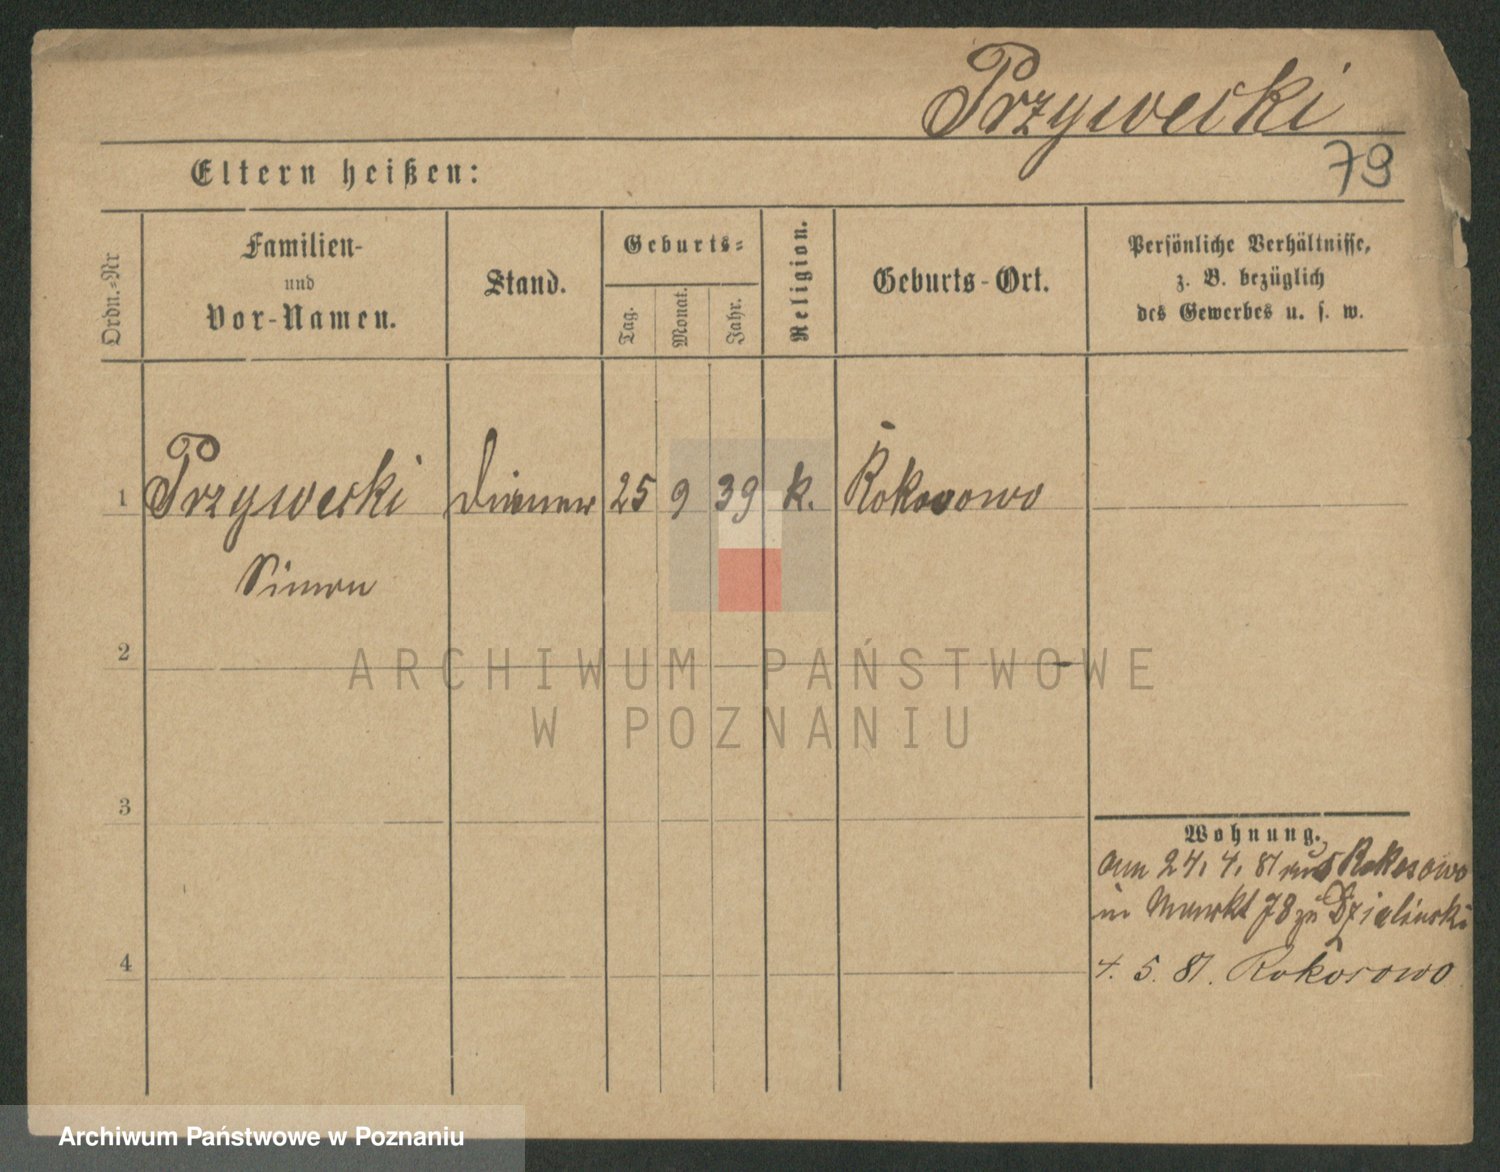 Przywecki
79
Eltern heißen:
Ordn.=Nr
Familien-
und
Vor-Namen.
Stand.
Geburts=
Tag.
Monat.
Jahr.
Religion.
Geburts-Ort.
Persönliche Verhältnisse,
z. B. bezüglich
des Gewerbes u. s. w.
1 Przywecki Diener 25 9 39 k. Rokosowo
Simon
2
ARCHIWUM PAŃSTWOWE
W POZNANIU
3
Wohnung.
am 24. 4. 81 aus Rokosowo
in Markt 78 zu Dzialinski
4
4. 5. 81. Rokosowo
Archiwum Państwowe w Poznaniu